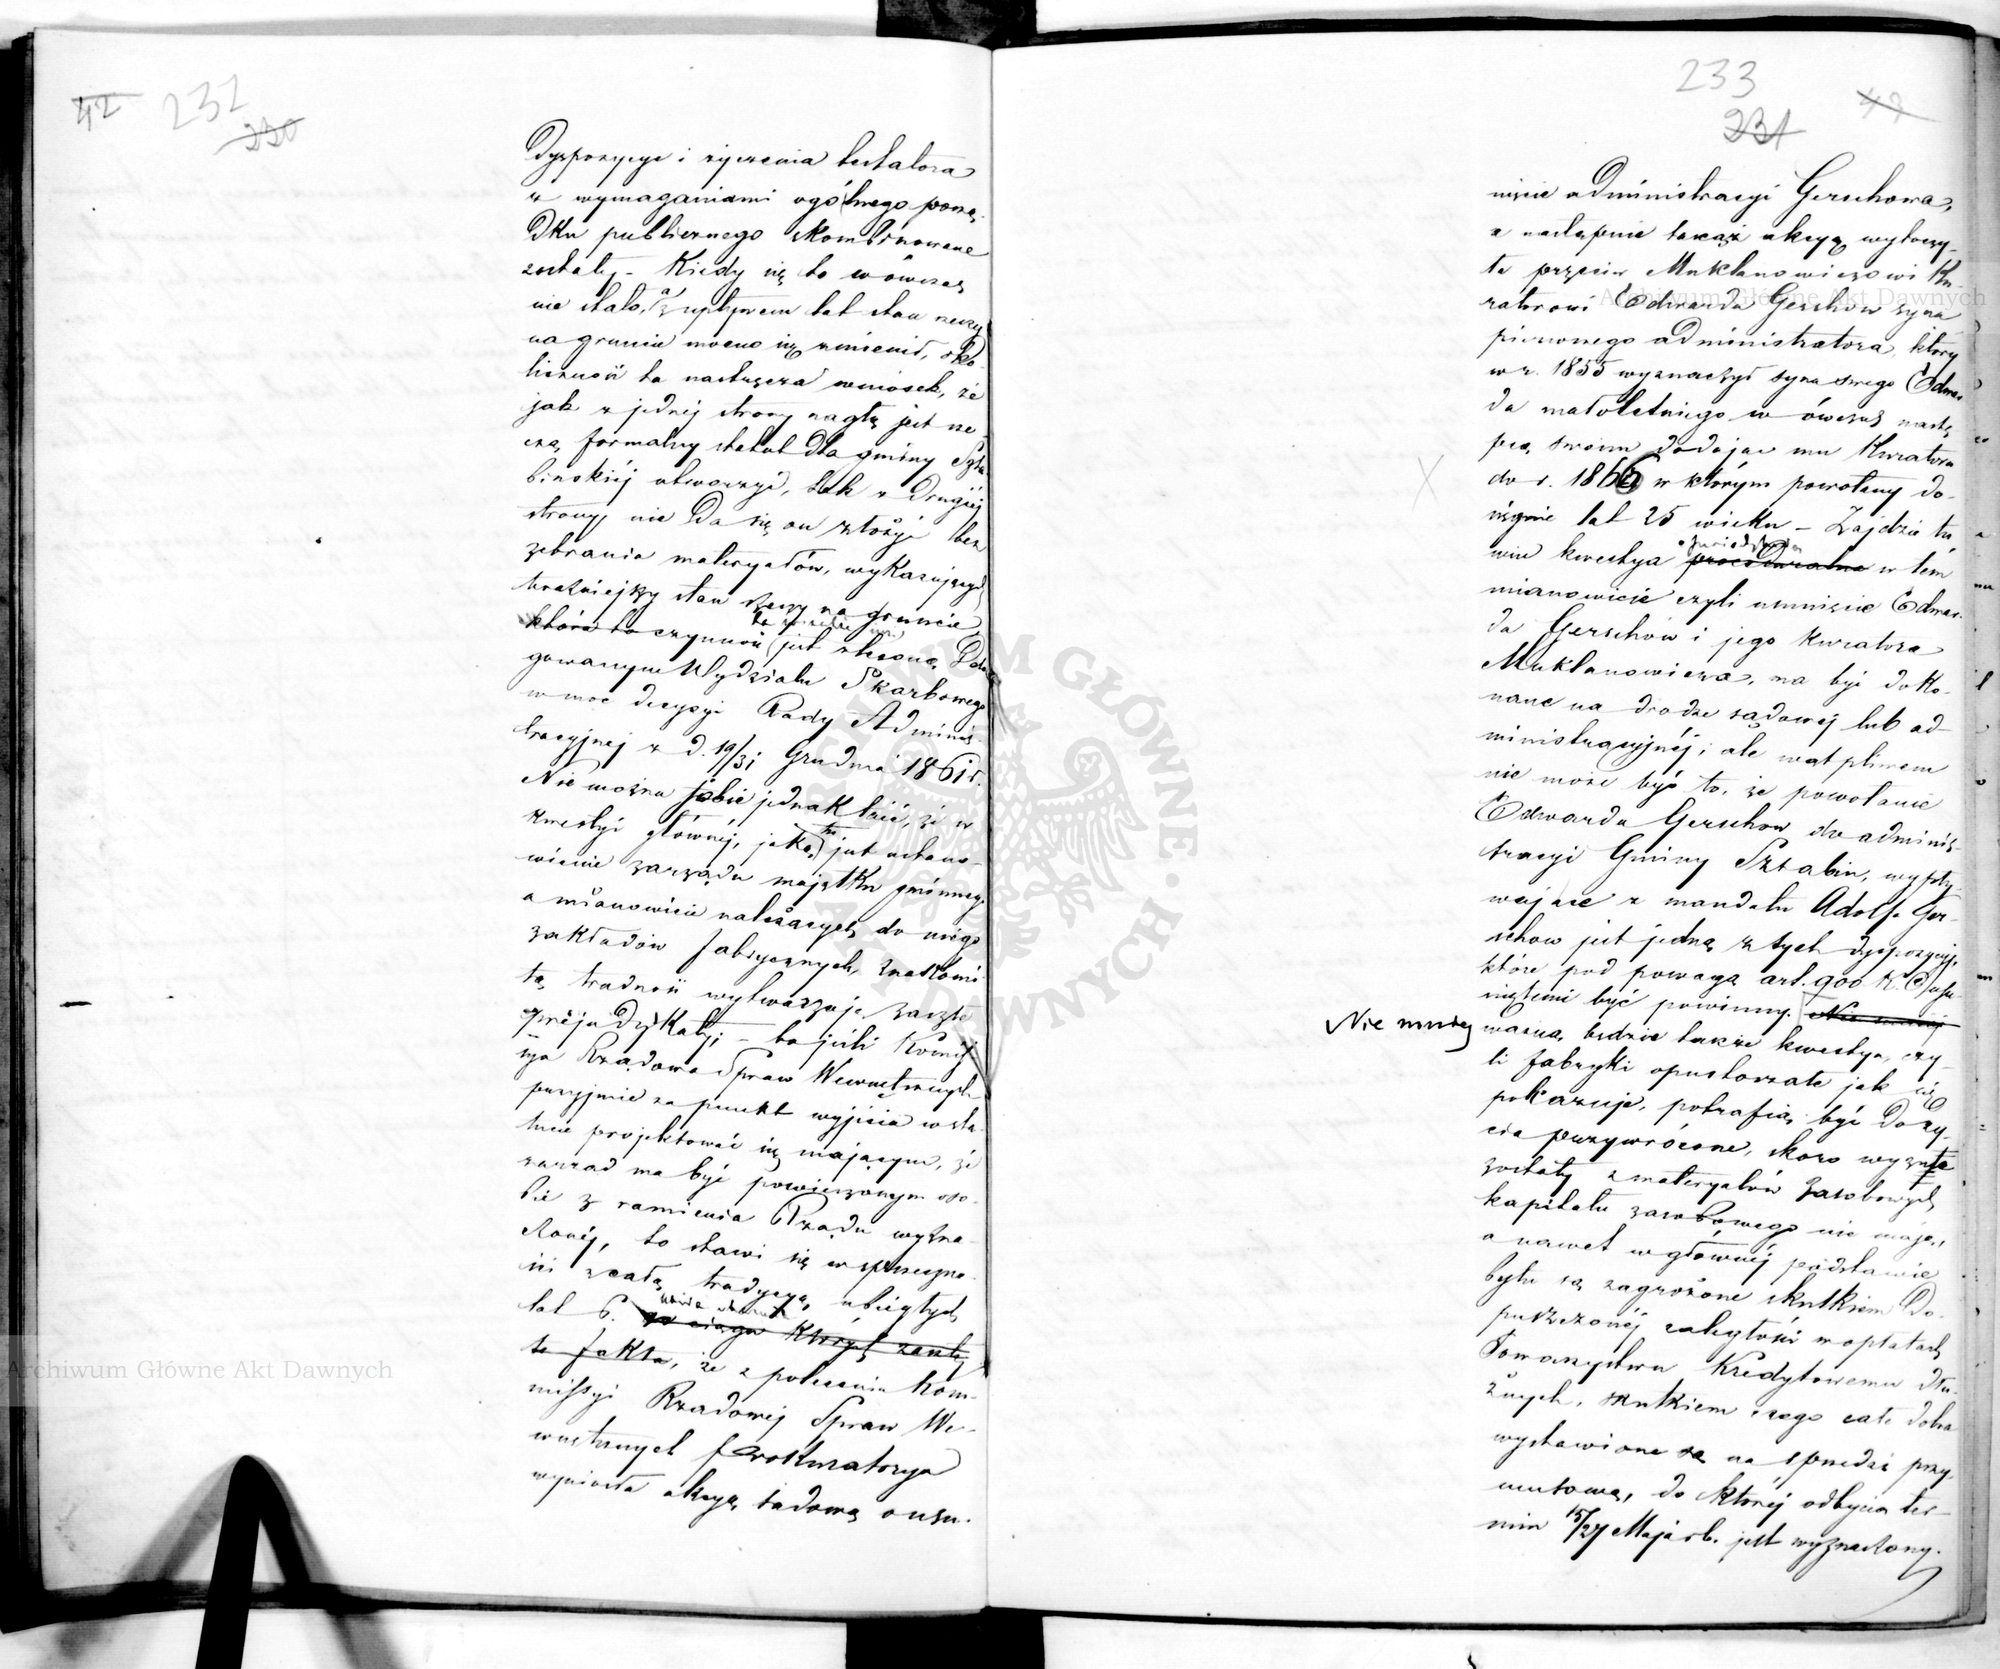 42 232
230
Dyspozycye i życzenia testatora
z wymaganiami ogólnego porzą-
dku publicznego skombinowane
zostały. – Kiedy się to wówczas
nie stało, a z upływem lat stan rzeczy
na gruncie mocno się zmienił, oko-
liczność ta nastręcza wniosek, że
jak z jednej strony nagłą jest rze-
czą, formalny statut dla gminy Szta-
bińskiej utworzyć, tak z drugiej
strony, nie da się on złożyć bez
zebrania materyałów, wykazujących
teraźniejszy stan rzeczy na gruncie,
która to czynność jest zlecona Dele-
gowanym Wydziału Skarbowego
w moc decyzyi Rady Adminis-
tracyjnej z d. 19/31 Grudnia 1861 r.
Nie można sobie jednak taić, że w
kwestyi głównej, jaką tu jest ustano-
wienie zarządu majątku gminnego
a mianowicie należących do niego
zakładów fabrycznych, znakomi-
tą trudność wytwarzają zaszłe
prejudykaty; – bo jeśli Komis-
sya Rządowa Spraw Wewnętrznych
przyjmie za punkt wyjścia w sta-
tucie projektować się mającym, że
zarząd ma być powierzonym oso-
bie z ramienia Rządu wyzna-
czonej, to stawi się w sprzeczno-
ści z całą tradycyą ubiegłych
lat 6. w ciągu których zaszły
te fakta, że z polecenia Kom-
missyi Rządowej Spraw We-
wnętrznych Prokuratorya
wyniosła akcyą sądową o usu-
233
231
nięcie administracyi Gerschowa,
a następnie takąż akcyą wytoczy-
ła przeciw Mukłanowiczowi Ku-
ratorowi Edwarda Gerschow syna
pierwszego administratora, który
w r. 1855 wyznaczył syna swego Edwar-
da małoletniego w ówczas nastę-
pcą swoim dodając mu Kuratora
do r. 1866 w którym powołany do-
sięgnie lat 25 wieku – Zajdzie tu
wie kwestya proceduralna w tem
mianowicie czyli usunięcie Edwar-
da Gerschow i jego Kuratora
Mukłanowicza, ma być doko-
nane na drodze sądowej lub ad-
ministracyjnej; ale wątpliwem
nie może być to, że powołanie
Edwarda Gerschow do adminis-
tracyi Gminy Sztabin, wypły-
wające z mandatu Adolfa Ger-
schow jest jedną z tych dyspozycyj,
które pod powagą art. 900 K. C. usu-
niętemi być powinny. Nie mniej
Nie mniej
ważną będzie także kwestya, czy-
li fabryki opustoszałe jak się
pokazuje, potrafią być do ży-
cia przywrócone, skoro wyzute
zostały z materyałów zasobowych,
kapitału zasobowego nie mają,
a nawet w głównej podstawie
bytu są zagrożone skutkiem do-
puszczonej zaległości w opłatach
Towarzystwu Kredytowemu dłu-
żnych, skutkiem czego całe dobra
wystawione są na sprzedaż przy-
musową, do której odbycia ter-
min 15/27 Maja r.b. jest wyznaczony.
Archiwum Główne Akt Dawnych
Archiwum Główne Akt Dawnych
ARCHIWUM GŁÓWNE AKT DAWNYCH